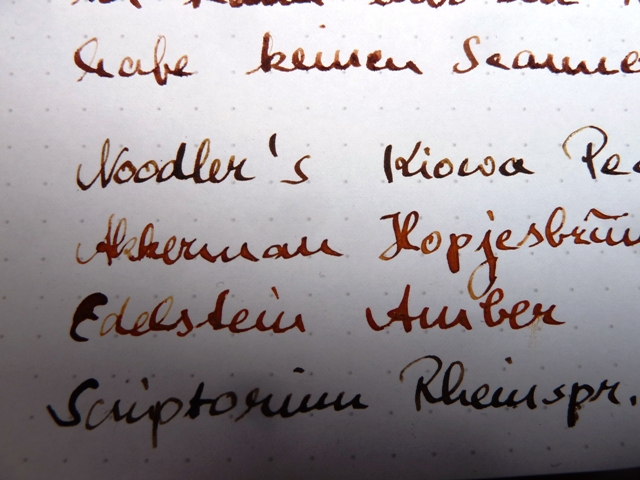 habe keinen Scanne
Noodler's Kiowa Pec
Akkerman Hopjesbrūn
Edelstein Amber
Scriptorium Rheinspr.